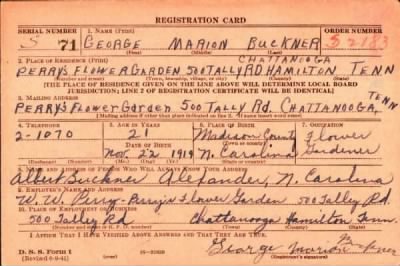 REGISTRATION CARD
SERIAL NUMBER 1. NAME (Print) ORDER NUMBER
S 71 GEORGE MARION BUCKNER S-2183
(First) (Middle) (Last)
2. PLACE OF RESIDENCE (Print) CHATTANOOGA
PERRYS FLOWER GARDEN 500 TALLY RD HAMILTON TENN
(Number and street) (Town, township, village, or city) (County) (State)
[THE PLACE OF RESIDENCE GIVEN ON THE LINE ABOVE WILL DETERMINE LOCAL BOARD
JURISDICTION; LINE 2 OF REGISTRATION CERTIFICATE WILL BE IDENTICAL]
3. MAILING ADDRESS
PERRYS Flower Garden 500 TALLY Rd. CHATTANOOGA, TENN
[Mailing address if other than place indicated on line 2. If same, insert word same]
4. TELEPHONE 5. AGE IN YEARS 6. PLACE OF BIRTH 7. OCCUPATION
2-1070 21 Madison County Flower
DATE OF BIRTH
Nov. 22 1919 N. Carolina Gardener
(Exchange) (Number) (Mo.) (Day) (Yr.) (State or country)
8. NAME AND ADDRESS OF PERSON WHO WILL ALWAYS KNOW YOUR ADDRESS
Albert Buckner Alexander, N. Carolina
9. EMPLOYER'S NAME AND ADDRESS
W. W. Perry-Perrys Flower Garden 500 Talley Rd.
10. PLACE OF EMPLOYMENT OR BUSINESS
500 Talley Rd Chattanooga Hamilton Tenn.
(Number and street or R. F. D. number) (Town) (County) (State)
I AFFIRM THAT I HAVE VERIFIED ABOVE ANSWERS AND THAT THEY ARE TRUE.
D. S. S. Form 1
(Revised 6-9-41) George Marion Buckner